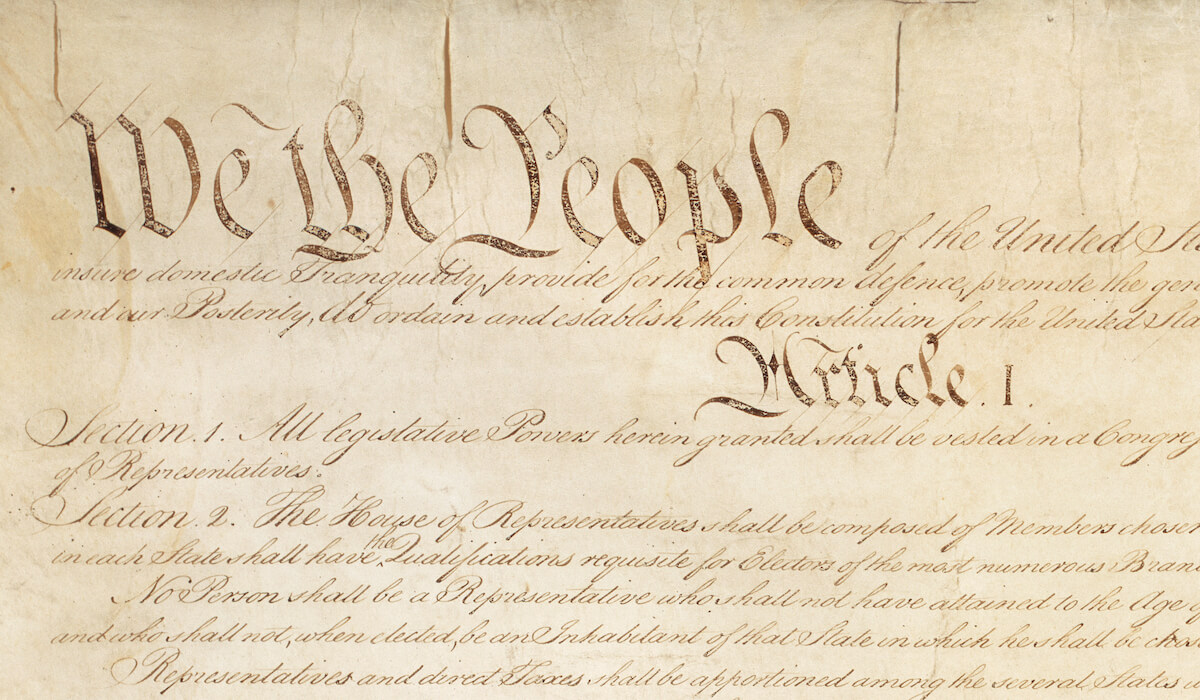 We the People of the United
insure domestic Tranquility, provide for the common defence, promote the
and our Posterity, do ordain and establish this Constitution for the United
Article. I.
Section. 1. All legislative Powers herein granted shall be vested in a
of Representatives.
Section. 2. The House of Representatives shall be composed of Members
in each State shall have the Qualifications requisite for Electors of the most numerous
No Person shall be a Representative who shall not have attained to the Age
and who shall not, when elected, be an Inhabitant of that State in which he shall be
Representatives and direct Taxes shall be apportioned among the several States